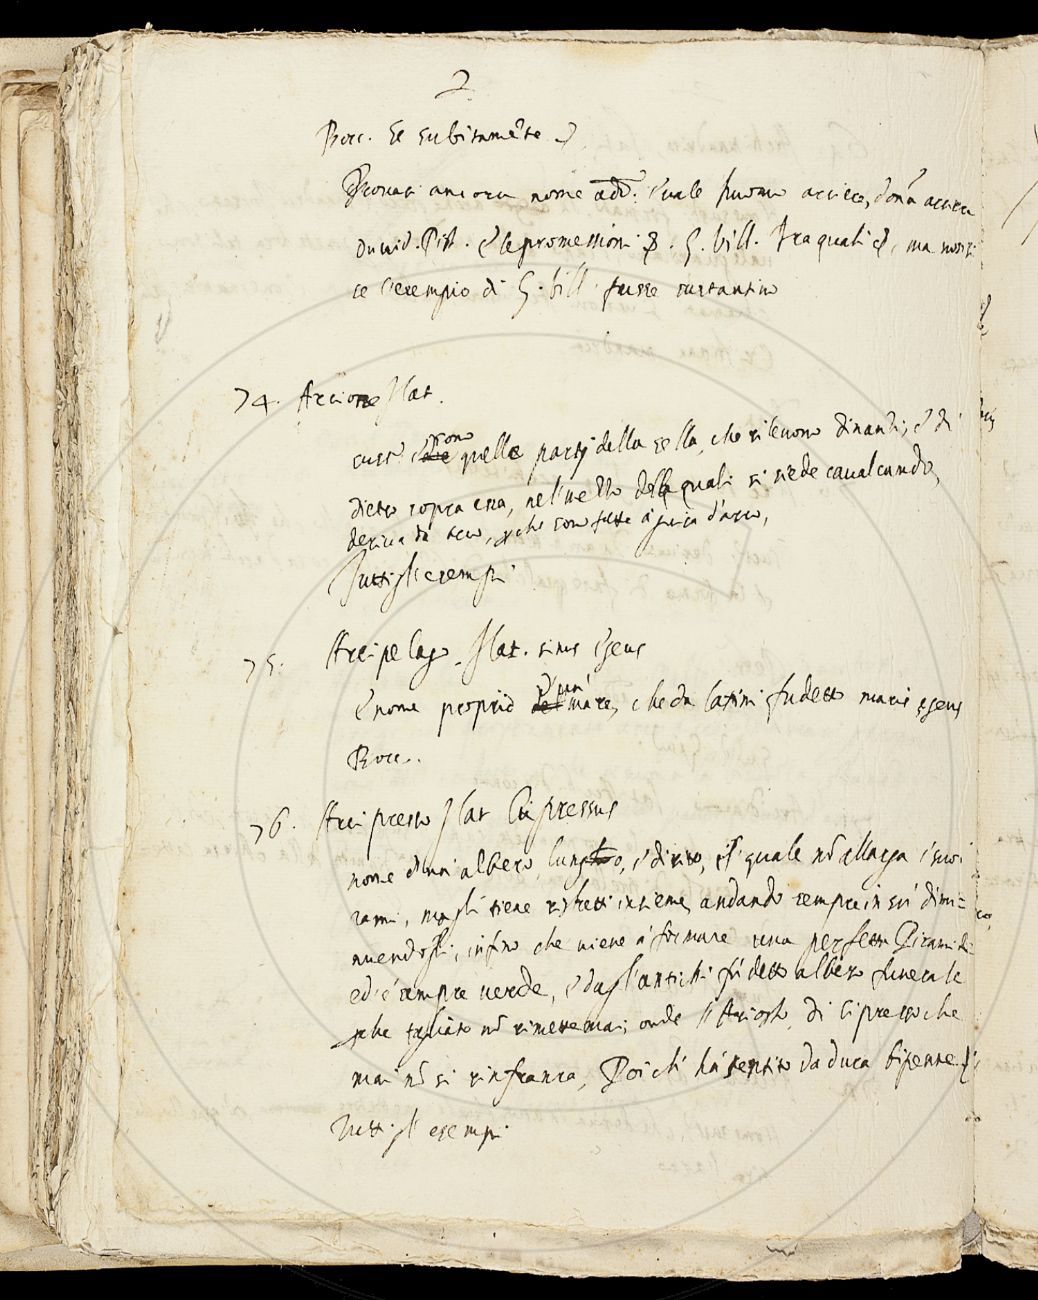 2
Bocc. Et subitamẽte
Trovasi ancora nome add. e vale huomo
Ovvid. Pist. e le promessioni &. G. Vill. tra quali &, ma
ce l'esempio di G. Vill. fusse sustantivo
74. Arcione Lat.
sono quelle parti della sella, che rilevono dinanzi, e di
dietro sopra essa, nel mezzo delle quali si siede cavalcando,
deriva da arco, che son fatte à guisa d'arco,
Tutti gli esempi
75. Arcipelago. Lat. sinus Egeus
è nome proprio d'un mare, che da latini fu detto maris egeus
Bocc.
76. Arcipresso Lat Cupressus
nome d'un albero, lungo, e diritto, il quale nõ allarga i suoi
rami, ma gli tiene ristretti insieme, andando sempre in sù dimi=
nuendogli, infino che viene à formare una perfetta Piramide
ed è sempre verde, e dagl'antichi fù detto albero funerale
che tagliato nõ rimette mai; onde l'Ariosto, di Cipresso che
mai nõ si rinfranca, Poi ch'hà sentito la dura bipenne
Tutti gli esempi